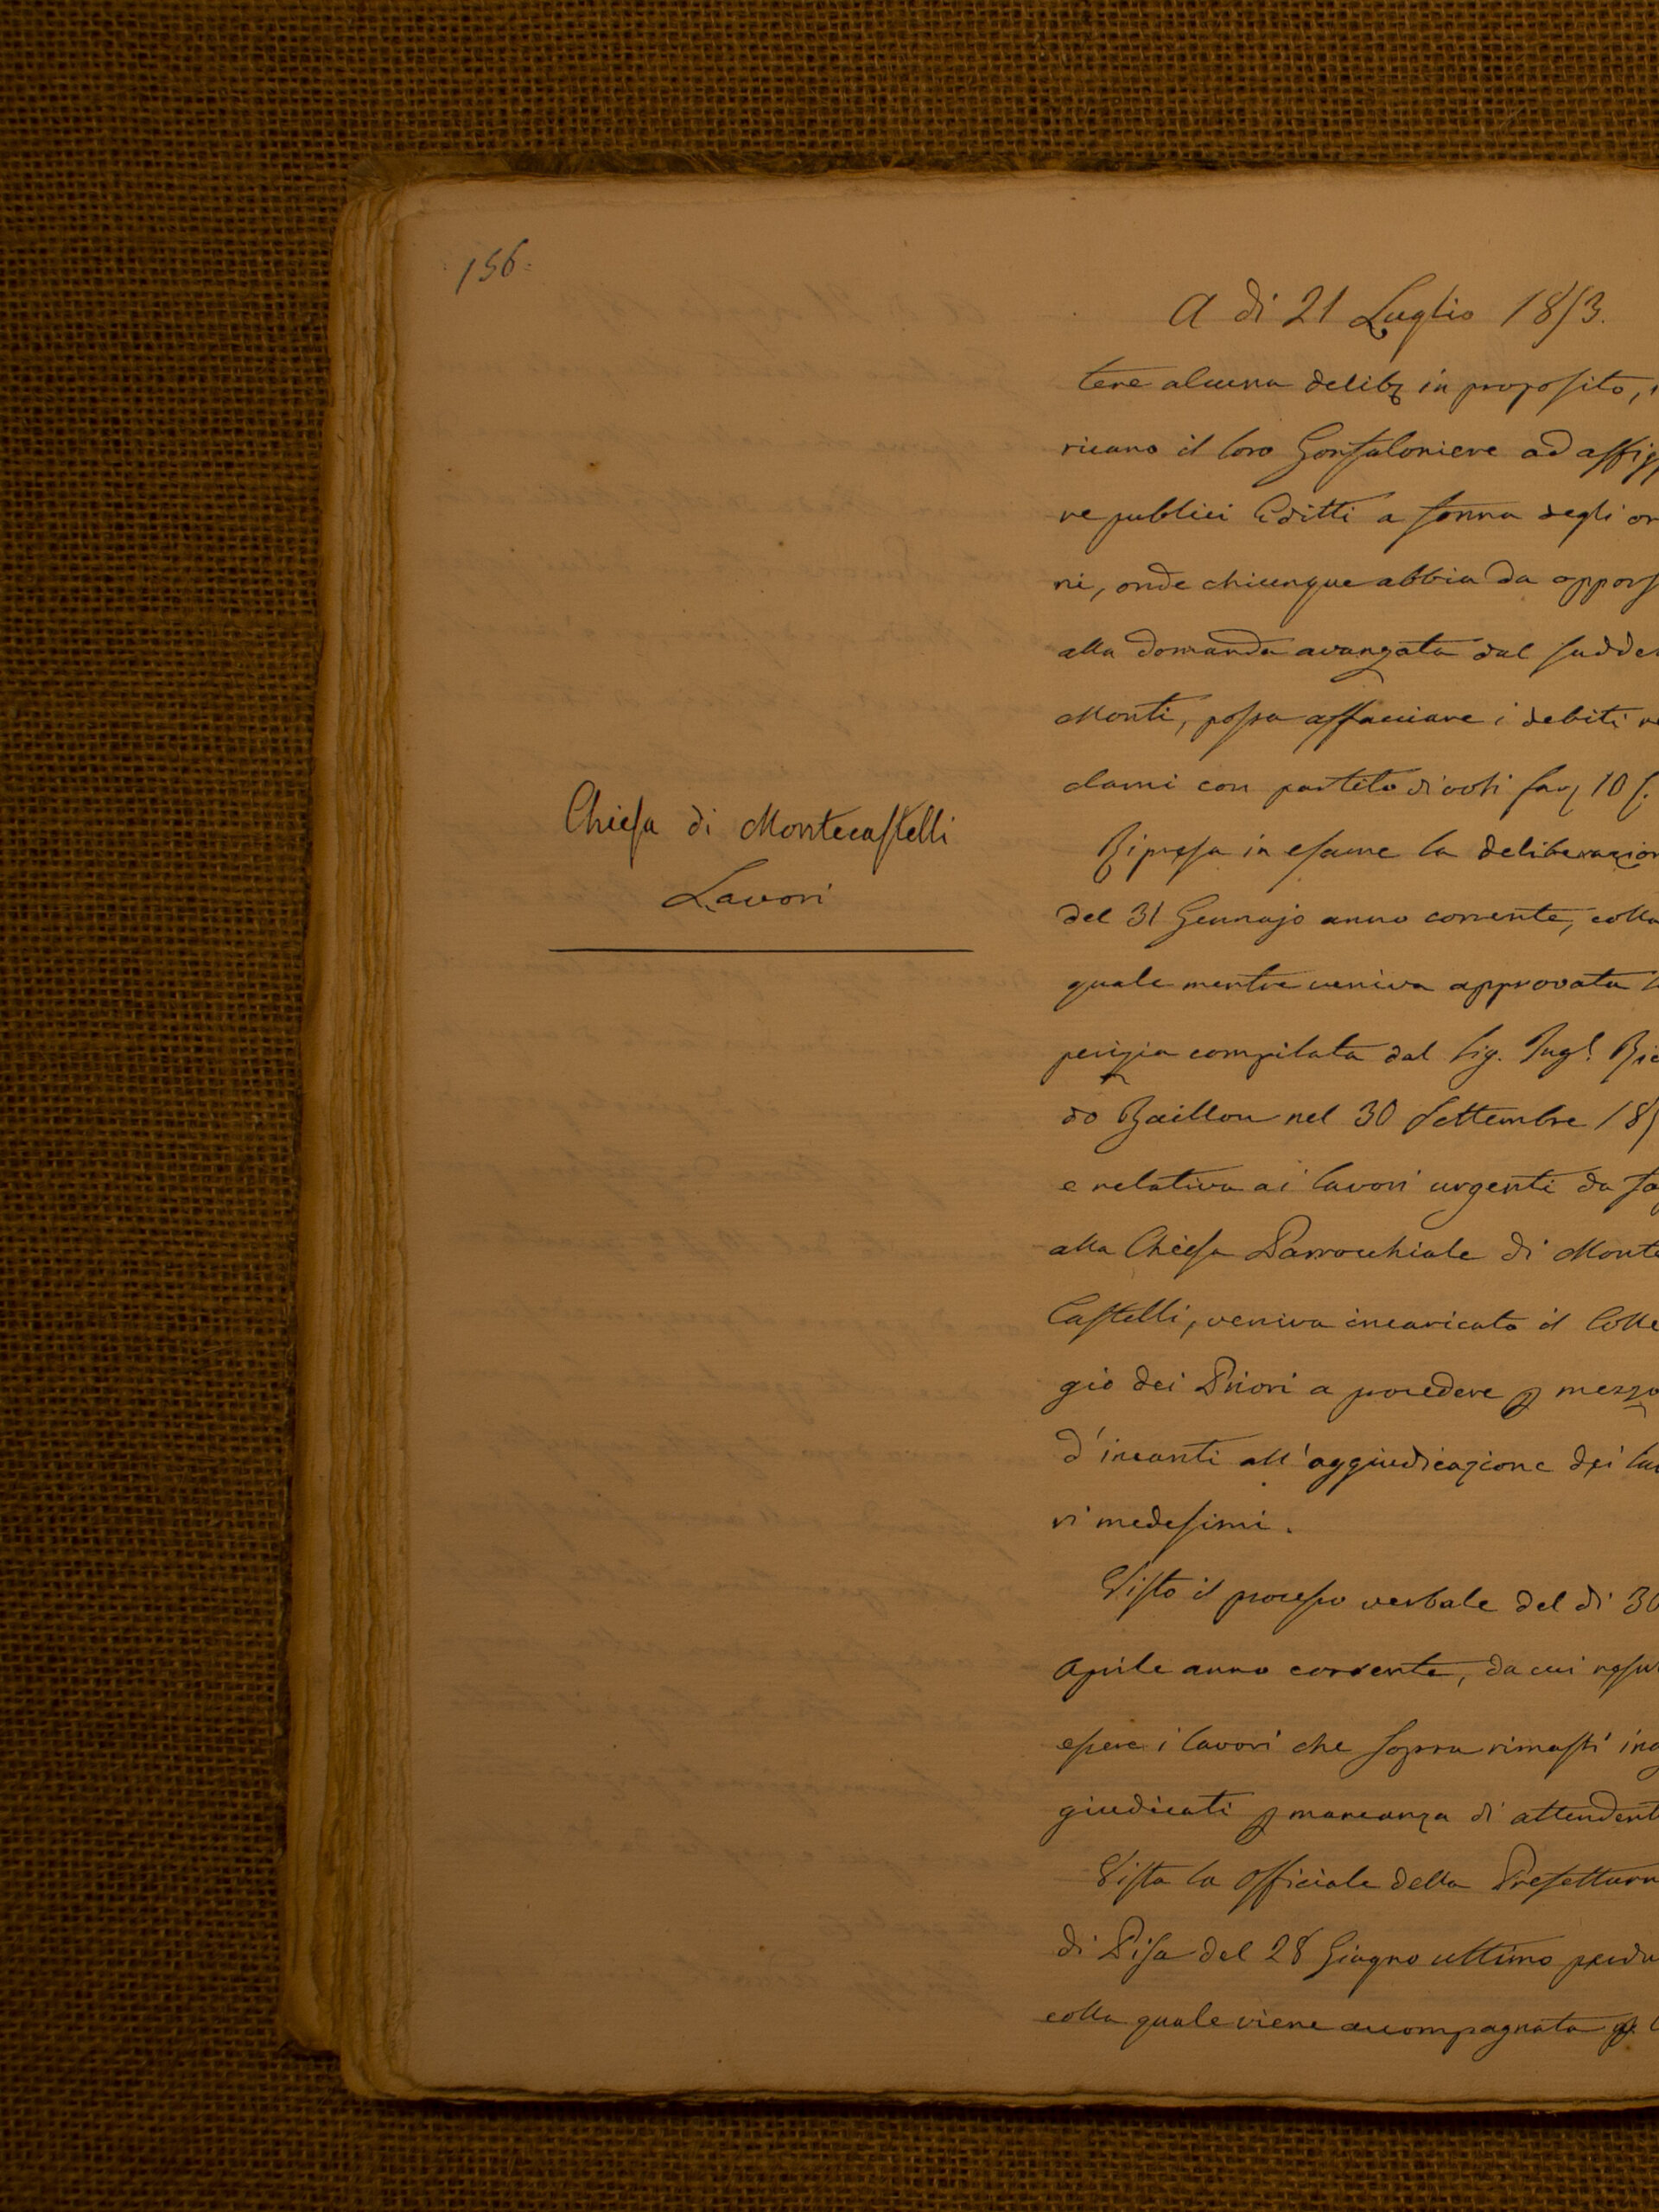 156.
A dì 21 Luglio 1853.
tere alcuna delibz in proposito,
ricano il loro Gonfaloniere ad affigg
re publici Editti a forma degli or
ni, onde chiunque abbia da oppors
alla domanda avanzata dal sudde
Monti, possa affacciare i debiti re
clami con partito di voti favz 10
Chiesa di Montecastelli
Lavori
Ripresa in esame la deliberazion
del 31 Gennajo anno corrente, colla
quale mentre veniva approvata
perizia compilata dal Sig. Ingl. Ric
do Baillou nel 30 Settembre 185
e relativa ai lavori urgenti da fa
alla Chiesa Parrocchiale di Monte
Castelli, veniva incaricato il Colle
gio dei Priori a procedere p mezzo
d'incanti all'aggiudicazione dei la
ri medesimi.
Visto il processo verbale del dì 30
Aprile anno corrente, da cui resul
essere i lavori che sopra rimasti inag
giudicati p mancanza di attendent
Vista la Officiale della Prefettura
di Pisa del 28 Giugno ultimo
colla quale viene accompagnata